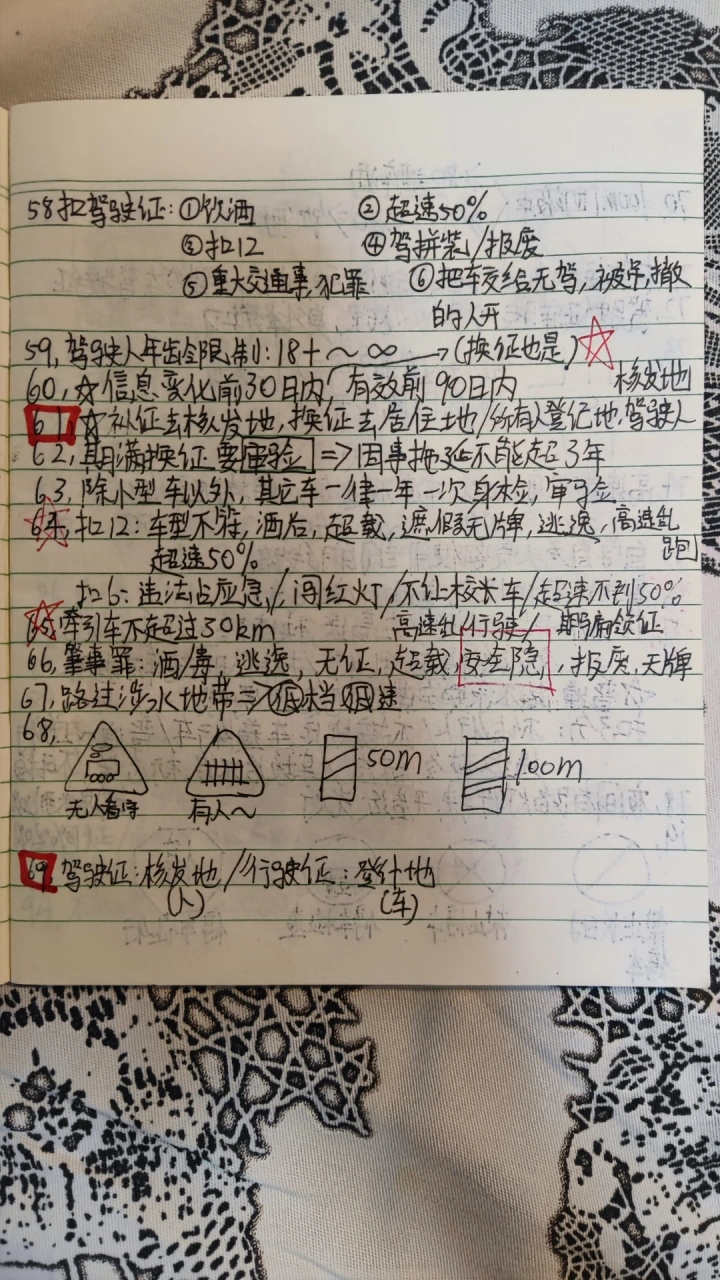 58扣驾驶证:①饮酒 ②超速50%
③扣12 ④驾拼装/报废
⑤重大交通事,犯罪 ⑥把车交给无驾,被吊,撤
的人开
59,驾驶人年龄限制:18+~∞→(换证也是)
60,☆信息变化前30日内,有效前90日内 核发地
61,☆补证去核发地,换证去居住地/所有人登记地,驾驶人
62,期满换证要审验=>因事拖延不能超3年
63,除小型车以外,其它车一律一年一次身检,审验
64,扣12:车型不符,酒后,超载,遮假无牌,逃逸,高速乱
超速50% 跑
扣6:违法占应急/闯红灯/不让校长车/超速不到50%
65,牵引车不超过30km 高速乱行驶/期满领证
66,肇事罪:酒/毒,逃逸,无证,超载,安全隐,报废,无牌
67,路过涉水地带=>低档低速
68,
50m 100m
无人看守 有人~
69,驾驶证:核发地/行驶证:登记地
(人) (车)